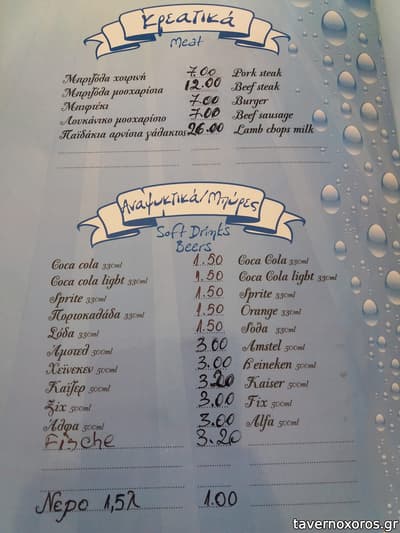 Κρεατικά
Meat
Μπριζόλα χοιρινή 7.00 Pork steak
Μπριζόλα μοσχαρίσια 12.00 Beef steak
Μπιφτέκι 7.00 Burger
Λουκάνικο μοσχαρίσιο 7.00 Beef sausage
Παϊδάκια αρνίσια γάλακτος 26.00 Lamb chops milk
Αναψυκτικά/Μπύρες
Soft Drinks
Beers
Coca cola 330ml 1.50 Coca Cola 330ml
Coca cola light 330ml 1.50 Coca Cola light 330ml
Sprite 330ml 1.50 Sprite 330ml
Πορτοκαλάδα 330ml 1.50 Orange 330ml
Σόδα 330ml 1.50 Soda 330ml
Άμστελ 500ml 3.00 Amstel 500ml
Χέινεκεν 500ml 3.00 Heineken 500ml
Καϊζερ 500ml 3.20 Kaiser 500ml
Φιξ 500ml 3.00 Fix 500ml
Άλφα 500ml 3.00 Alfa 500ml
3.20
Νερο 1,5λ 1.00
www.tavernoxoros.gr